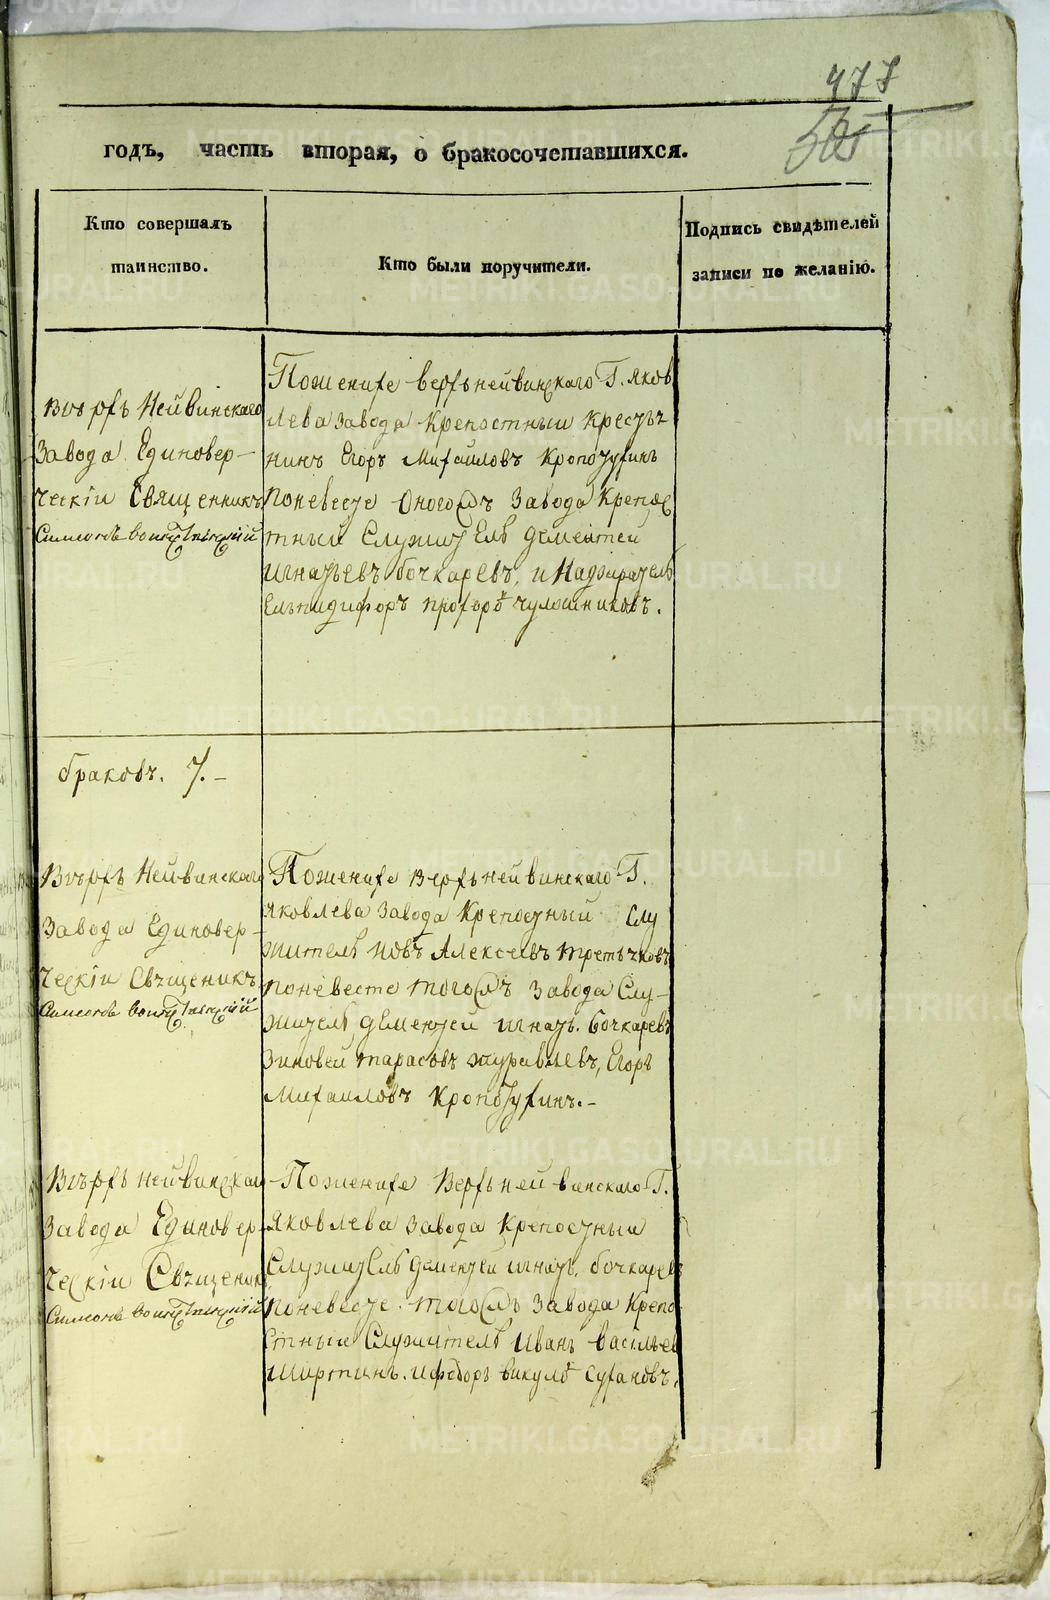 477
годъ, часть вторая, о бракосочетавшихся.
Кто совершалъ
таинство.
Кто были поручители.
Подпись свидѣтелей
записи по желанію.
Вѣрхъ Нейвинскаго
Завода Единовер-
ческіи Священникъ
Симеонъ
Поженихе верхънейвинскаго Г. яков
лева завода крепостныи кресть
нинъ Егоръ Михаиловъ Кропотухинъ
поневесте оного жъ завода крепос
тный Служитель дементей
игнатьевъ бочкаревъ, и Надзиратель
Ельпидифоръ прохоръ чулошниковъ.
браковъ. 7.-
Вѣрхъ Нейвинскаго
Завода Единовер-
ческіи Свѣщеникъ
Симеонъ
Поженихе Верхънейвинскаго Г.
Яковлева Завода Крепостный Слу
житель Алексеевъ третьчковъ
поневесте того жъ завода Слу-
житель, дементей игнать. бочкаревъ
зиновей тарасовъ журавлевъ, Егоръ
Михаиловъ Кропотухинъ.-
Вѣрхъ нейвинскаго
Завода Единовер-
ческіи Свѣщеникъ
Симеонъ
Поженихе Верхъней винскаго Г.
Яковлева завода Крепостныи
Служитель дементей игнать. бочкаревъ
поневесте. того жъ завода Крепо
стныи Служитель Иванъ васильев
ширтинъ. ифедоръ викулъ сухановъ.
METRIKI.GASO-URAL.RU